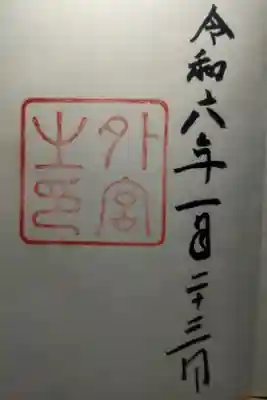 令和六年一月二十三日
外宮
之印